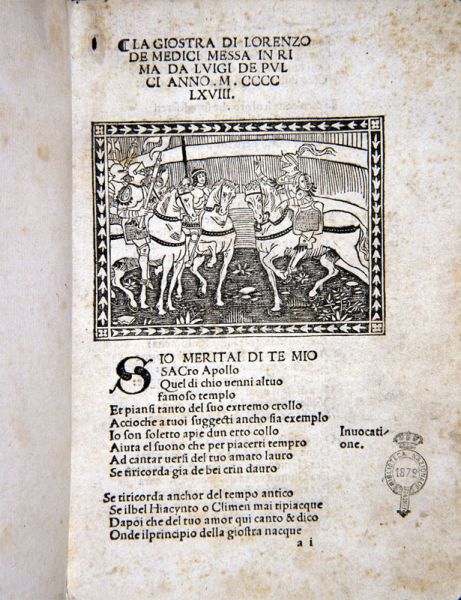 ❡LA GIOSTRA DI LORENZO
DE MEDICI MESSA IN RI
MA DA LVIGI DE PVL
CI ANNO. M. CCCC
LXVIII.
SIO MERITAI DI TE MIO
SACro Apollo
Quel di chio uenni altuo
famoso templo
Et piansi tanto del suo extremo crollo
Accioche a tuoi suggecti ancho sia exemplo
Io son soletto apie dun erto collo
Aiuta el suono che per piacerti tempro
Ad cantar uersi del tuo amato lauro
Se tiricorda gia de bei crin dauro
Inuocati
one.
Se tiricorda anchor del tempo antico
Se ilbel Hiacynto o Climen mai tipiacque
Dapoi che del tuo amor qui canto & dico
Onde ilprincipio della giostra nacque
a i
BIBLIOTECA NAZIONALE
1879